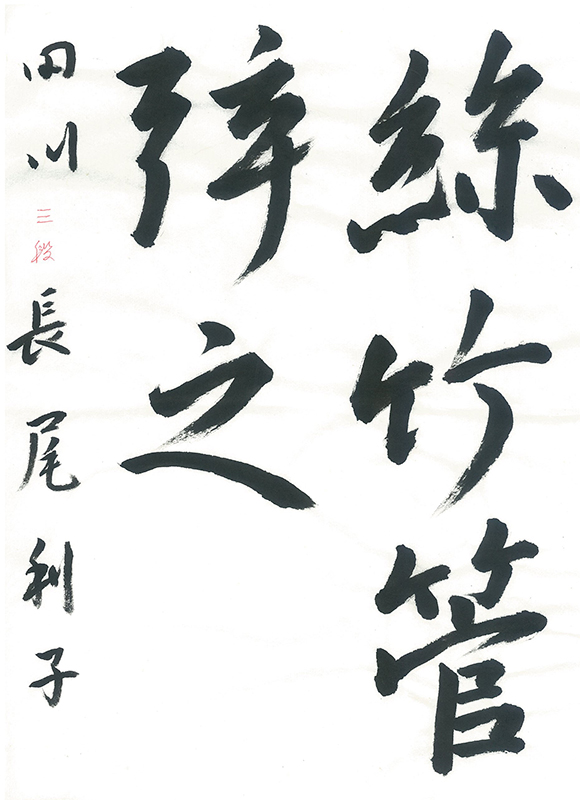 絲竹管
弦之
田川 三段 長尾利子